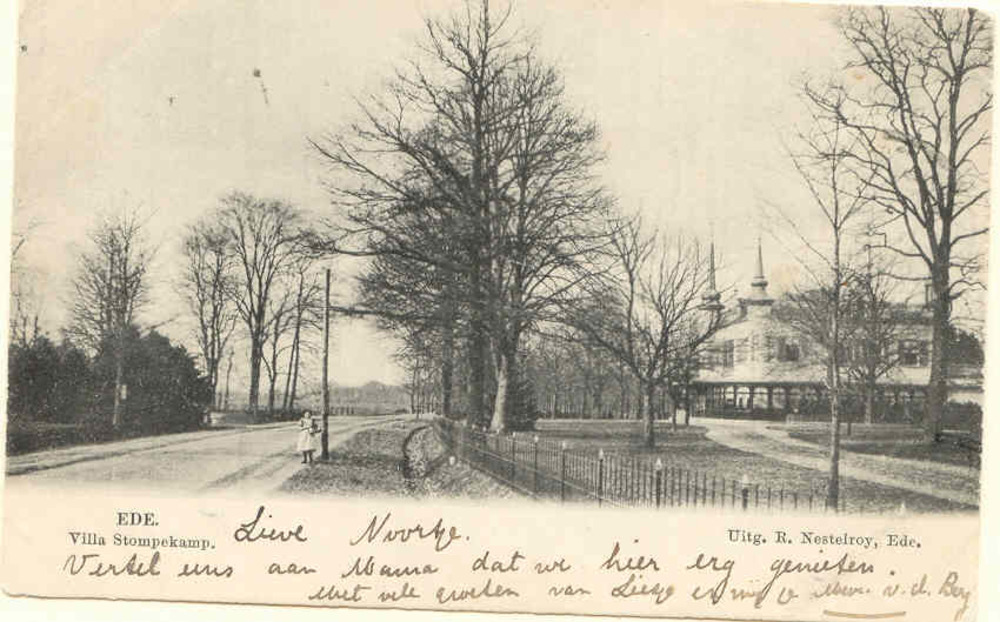 EDE.
Villa Stompekamp.
Lieve Noortje.
Uitg. R. Nestelroy, Ede.
Vertel uns aan Mama dat we hier erg genieten.
Met vele groeten van Liesje en mij Mevr. v. d. Berg